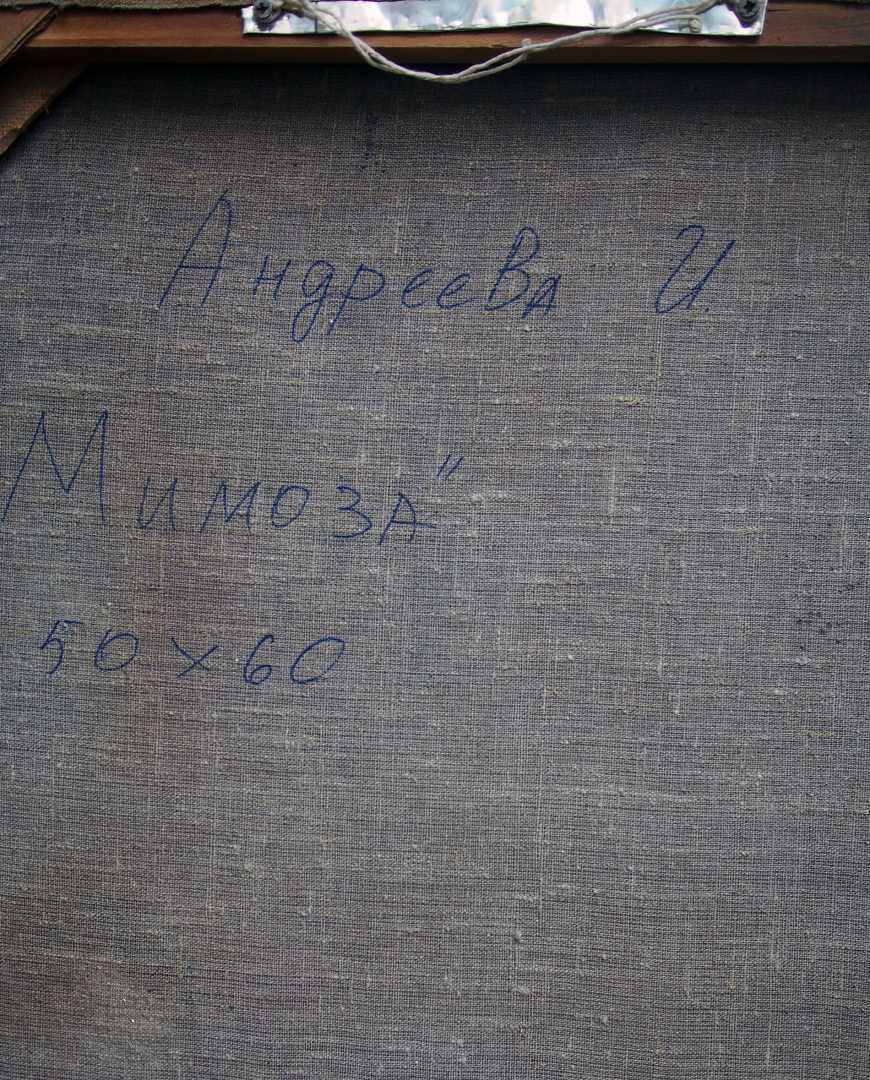 Андреева И.
Мимоза"
50 х 60